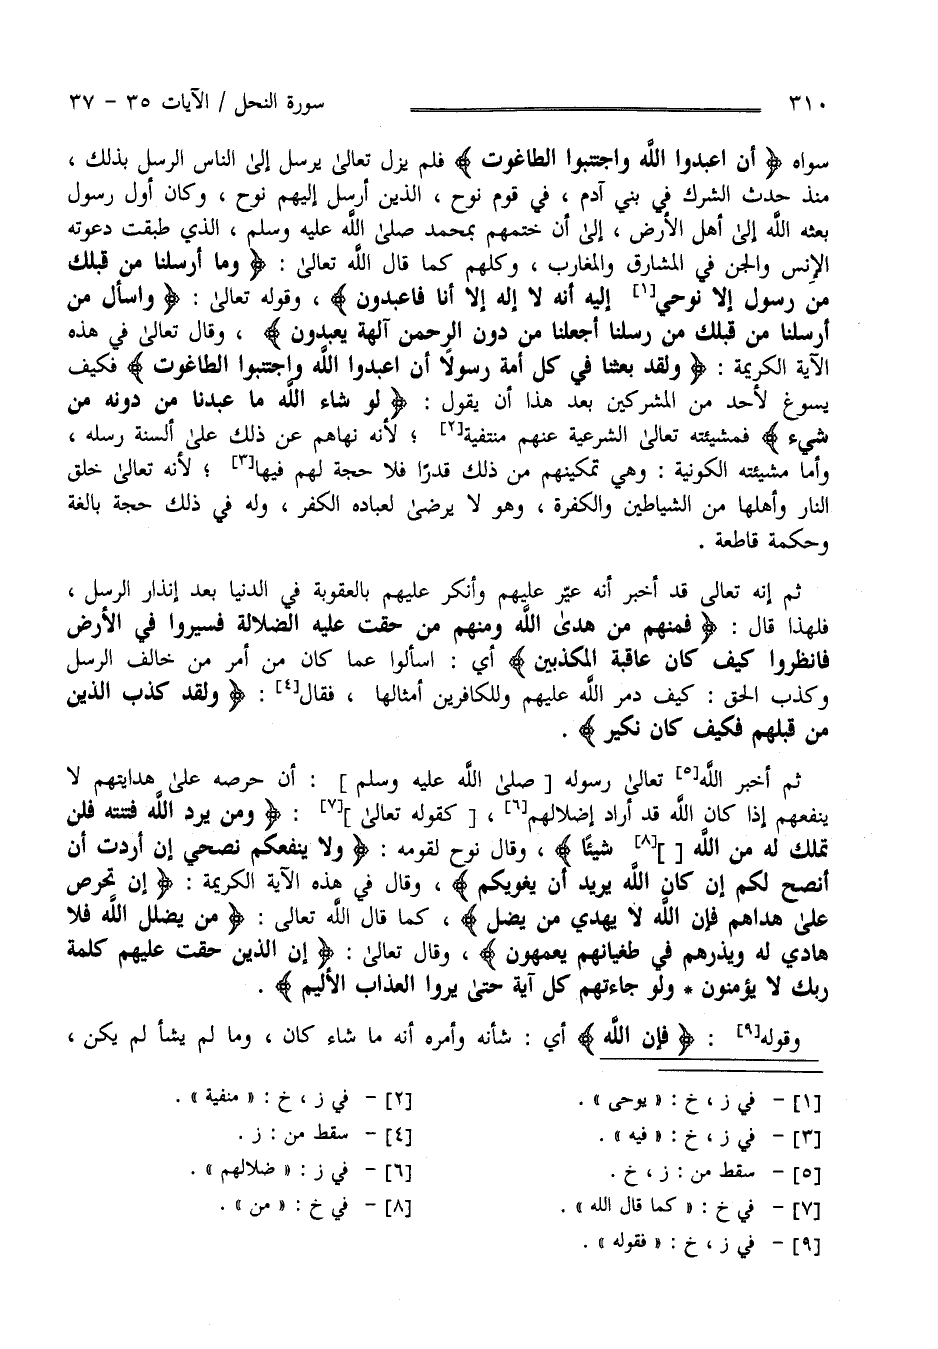 ٣١٠ سورة النحل / الآيات ٣٥ - ٣٧
سواه ﴿ أن اعبدوا اللَّه واجتنبوا الطاغوت ﴾ فلم يزل تعالىٰ يرسل إلىٰ الناس الرسل بذلك ،
منذ حدث الشرك في بني آدم ، في قوم نوح ، الذين أرسل إليهم نوح ، وكان أول رسول
بعثه اللَّه إلىٰ أهل الأرض ، إلىٰ أن ختمهم بمحمد صلىٰ اللَّه عليه وسلم ، الذي طبقت دعوته
الإنس والجن في المشارق والمغارب ، وكلهم كما قال اللَّه تعالىٰ : ﴿ وما أرسلنا من قبلك
من رسول إلا نوحي[١] إليه أنه لا إله إلا أنا فاعبدون ﴾ ، وقوله تعالىٰ : ﴿ واسأل من
أرسلنا من قبلك من رسلنا أجعلنا من دون الرحمن آلهة يعبدون ﴾ ، وقال تعالىٰ في هذه
الآية الكريمة : ﴿ ولقد بعثنا في كل أمة رسولًا أن اعبدوا اللَّه واجتنبوا الطاغوت ﴾ فكيف
يسوغ لأحد من المشركين بعد هذا أن يقول : ﴿ لو شاء اللَّه ما عبدنا من دونه من
شيء ﴾ فمشيئته تعالىٰ الشرعية عنهم منتفية[٢] ؛ لأنه نهاهم عن ذلك علىٰ ألسنة رسله ،
وأما مشيئته الكونية : وهي تمكينهم من ذلك قدرًا فلا حجة لهم فيها[٣] ؛ لأنه تعالىٰ خلق
النار وأهلها من الشياطين والكفرة ، وهو لا يرضىٰ لعباده الكفر ، وله في ذلك حجة بالغة
وحكمة قاطعة .
ثم إنه تعالى قد أخبر أنه عيّر عليهم وأنكر عليهم بالعقوبة في الدنيا بعد إنذار الرسل ،
فلهذا قال : ﴿ فمنهم من هدىٰ اللَّه ومنهم من حقت عليه الضلالة فسيروا في الأرض
فانظروا كيف كان عاقبة المكذبين ﴾ أي : اسألوا عما كان من أمر من خالف الرسل
وكذب الحق : كيف دمر اللَّه عليهم وللكافرين أمثالها ، فقال[٤] : ﴿ ولقد كذب الذين
من قبلهم فكيف كان نكير ﴾ .
ثم أخبر اللَّه[٥] تعالىٰ رسوله [ صلىٰ اللَّه عليه وسلم ] : أن حرصه علىٰ هدايتهم لا
ينفعهم إذا كان اللَّه قد أراد إضلالهم[٦] ، [ كقوله تعالىٰ ][٧] : ﴿ ومن يرد اللَّه فتنته فلن
تملك له من اللَّه [ ][٨] شيئًا ﴾ ، وقال نوح لقومه : ﴿ ولا ينفعكم نصحي إن أردت أن
أنصح لكم إن كان اللَّه يريد أن يغويكم ﴾ ، وقال في هذه الآية الكريمة : ﴿ إن تحرص
علىٰ هداهم فإن اللَّه لا يهدي من يضل ﴾ ، كما قال اللَّه تعالى : ﴿ من يضلل اللَّه فلا
هادي له ويذرهم في طغيانهم يعمهون ﴾ ، وقال تعالىٰ : ﴿ إن الذين حقت عليهم كلمة
ربك لا يؤمنون * ولو جاءتهم كل آية حتىٰ يروا العذاب الأليم ﴾ .
وقوله[٩] : ﴿ فإن اللَّه ﴾ أي : شأنه وأمره أنه ما شاء كان ، وما لم يشأ لم يكن ،
[١] - في ز ، خ : « يوحى » . [٢] - في ز ، خ : « منفية » .
[٣] - في ز ، خ : « فيه » . [٤] - سقط من : ز .
[٥] - سقط من : ز ، خ . [٦] - في ز : « ضلالهم » .
[٧] - في خ : « كما قال الله » . [٨] - في خ : « من » .
[٩] - في ز ، خ : « فقوله » .